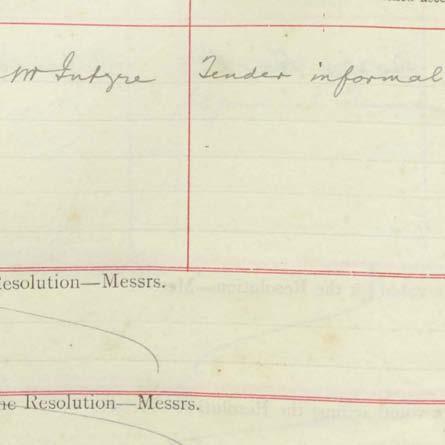 McIntyre Tender informal
Resolution—Messrs.
the Resolution—Messrs.